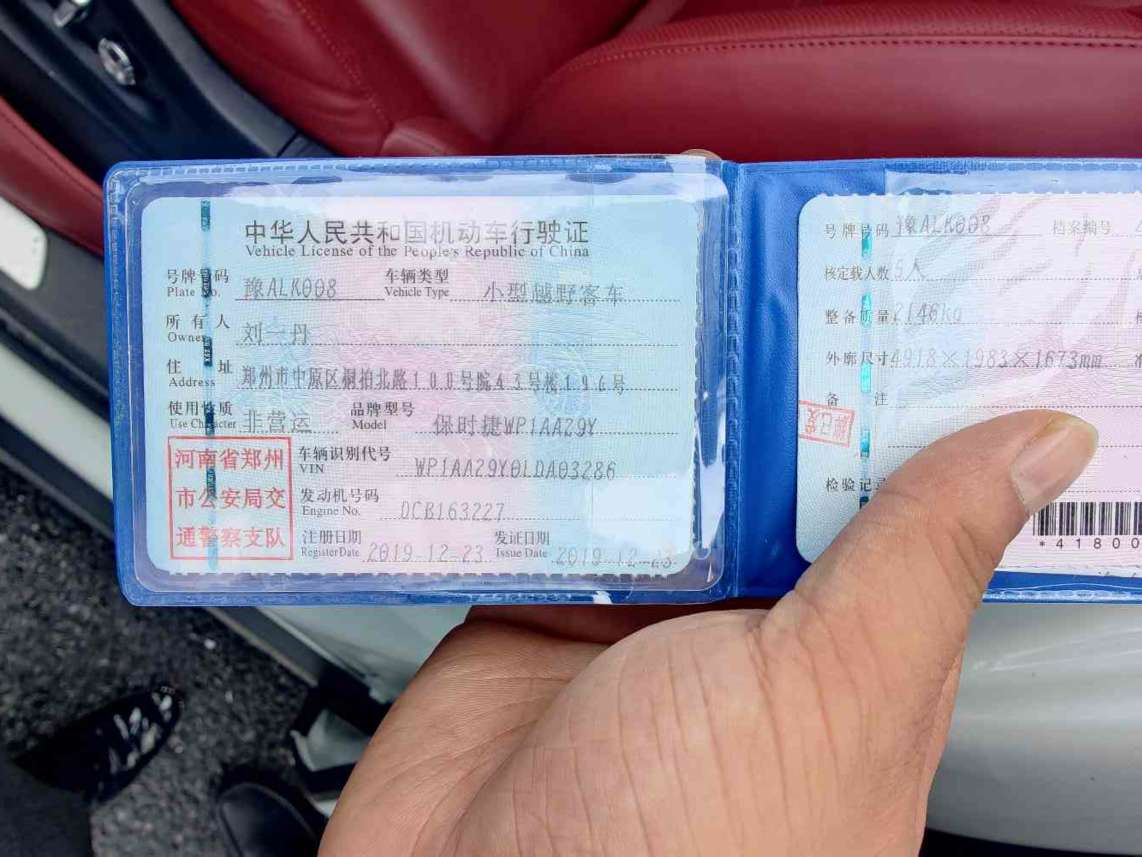 中华人民共和国机动车行驶证
Vehicle License of the People's Republic of China
号牌号码 豫ALK008 车辆类型 小型越野客车
Plate No. Vehicle Type
所有人 刘一丹
Owner
住址 郑州市中原区桐柏北路100号院43号楼196号
Address
使用性质 非营运 品牌型号 保时捷WP1AA29Y
Use Character Model
河南省郑州
市公安局交
通警察支队
车辆识别代号 WP1AA29Y0LDA03286
VIN
发动机号码 DCB163227
Engine No.
注册日期 2019-12-23 发证日期 2019-12-23
Register Date Issue Date
号牌号码 豫ALK008 档案编号
核定载人数 5人
整备质量 2146kg
外廓尺寸 4918×1983×1673mm
备注
检验记
*41800